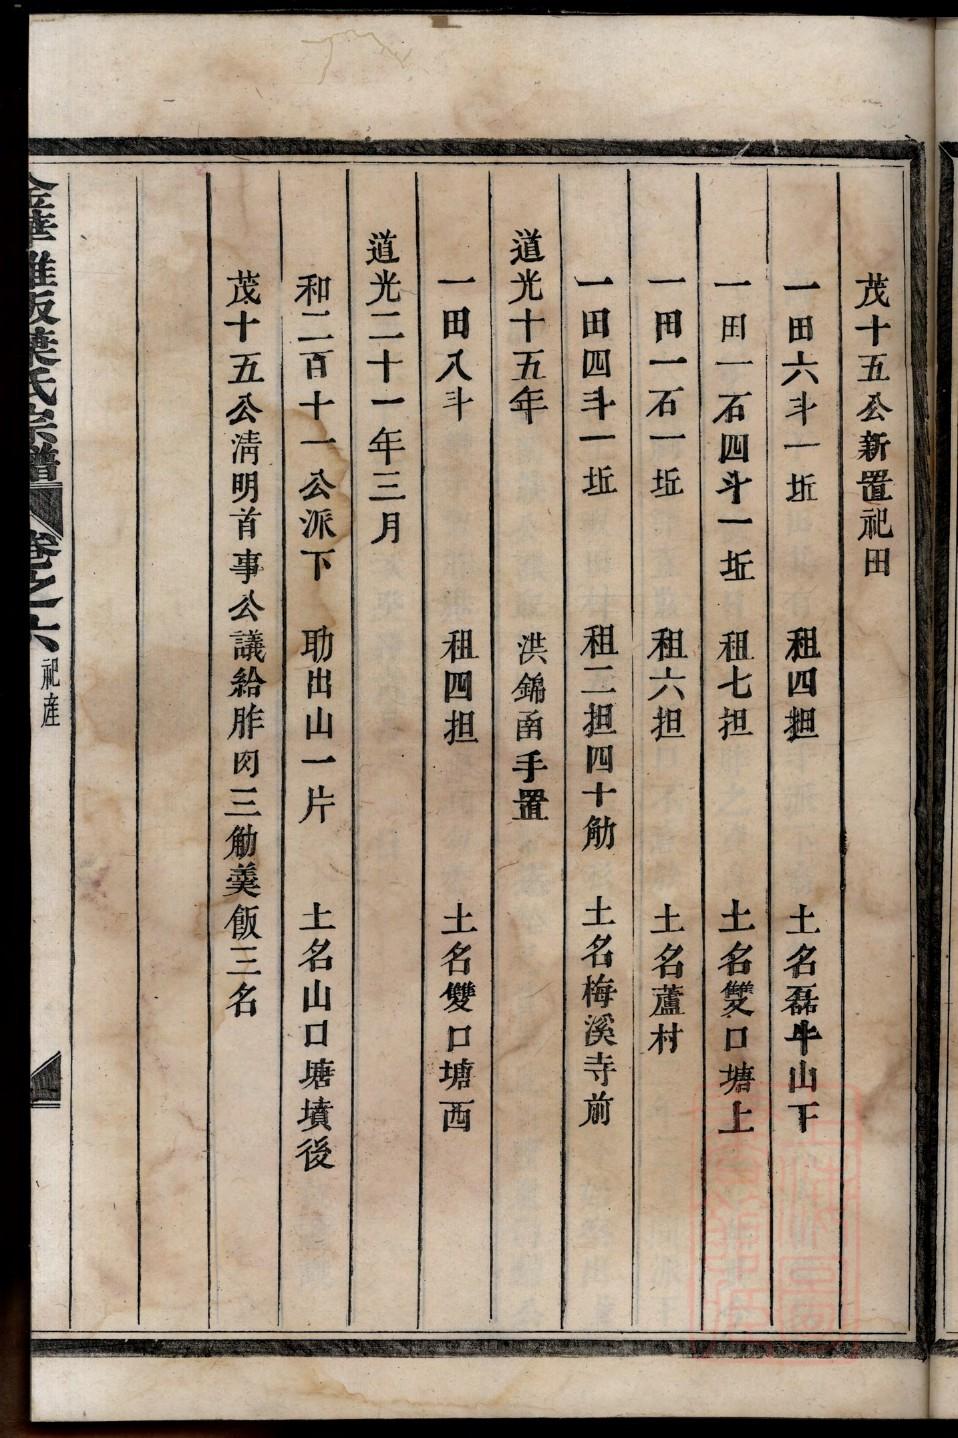 茂十五公新置祀田
一田六斗一坵 租四担 土名磊牛山下
一田一石四斗一坵 租七担 土名雙口塘上
一田一石一坵 租六担 土名蘆村
一田四斗一坵 租二担四十觔 土名梅溪寺前
道光十五年 洪錦甬手置
一田八斗 租四担 土名雙口塘西
道光二十一年三月
和二百十一公派下 助出山一片 土名山口塘墳後
茂十五公清明首事公議給胙肉三觔羹飯三名
金華雅畈葉氏宗譜 卷之六 祀産